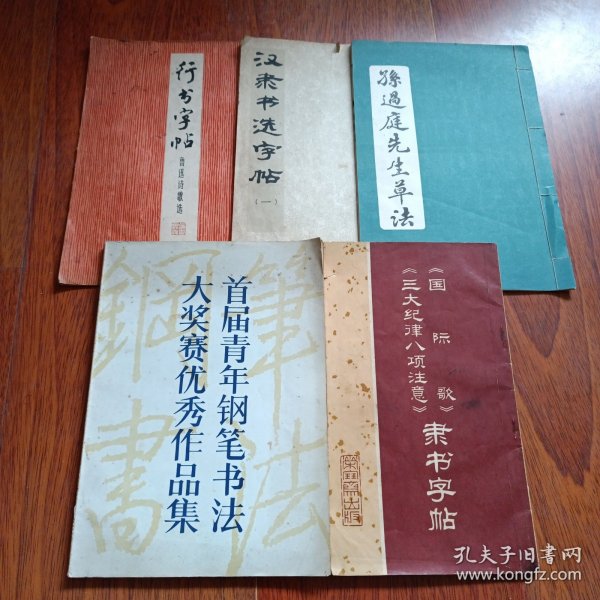 行书字帖
鲁迅诗歌选
汉隶书选字帖
(一)
孙过庭先生草法
首届青年钢笔书法
大奖赛优秀作品集
鋼筆
書法
《国际歌》
《三大纪律八项注意》
隶书字帖
荣宝斋出版
孔夫子旧书网
www.kongfz.com